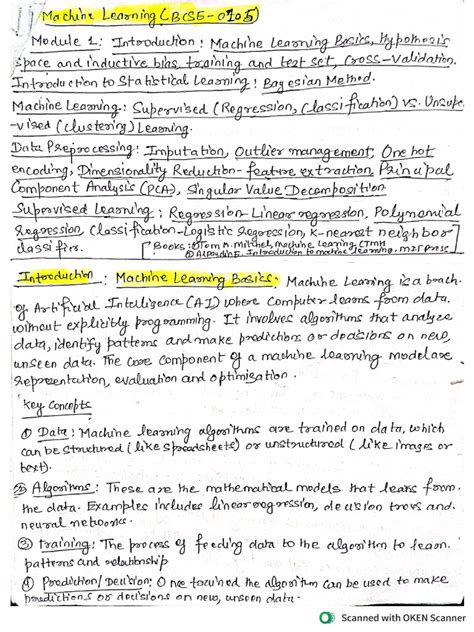 Machine Learning (BCSE-0105)
Module 1: Introduction: Machine Learning Basics, Hypothesis
space and inductive bias, training and test set, cross-validation.
Introduction to Statistical Learning: Bayesian Method.
Machine Learning: Supervised (Regression, Classification) vs. Unsupe
-vised (clustering) Learning.
Data Preprocessing: Imputation, Outlier management, One hot
encoding, Dimensionality Reduction - feature extraction, Principal
Component Analysis (PCA), Singular Value Decomposition
Supervised Learning: Regression - Linear regression, Polynomial
Regression, Classification - Logistic Regression, K-nearest neighbor
classifier. [Books: ① Tom M. Mitchel, Machine Learning,
② Introduction to machine learning,
Introduction: Machine Learning Basics: Machine Learning is a brach
of Artificial Intelligence (AI) where computer learns from data
without explicitly programming. It involves algorithms that analyze
data, identify patterns and make predictions or decisions on new,
unseen data. The core component of a machine learning model are
representation, evaluation and optimisation.
Key Concepts
① Data: Machine learning algorithms are trained on data, which
can be structured (like spreadsheets) or unstructured (like images or
text).
② Algorithms: These are the mathematical models that learn from
the data. Examples includes linear regression, decision trees and
neural networks.
③ Training: The process of feeding data to the algorithm to learn
patterns and relationship
④ Prediction/Decision: Once trained the algorithm can be used to make
predictions or decisions on new, unseen data.
Scanned with OKEN Scanner